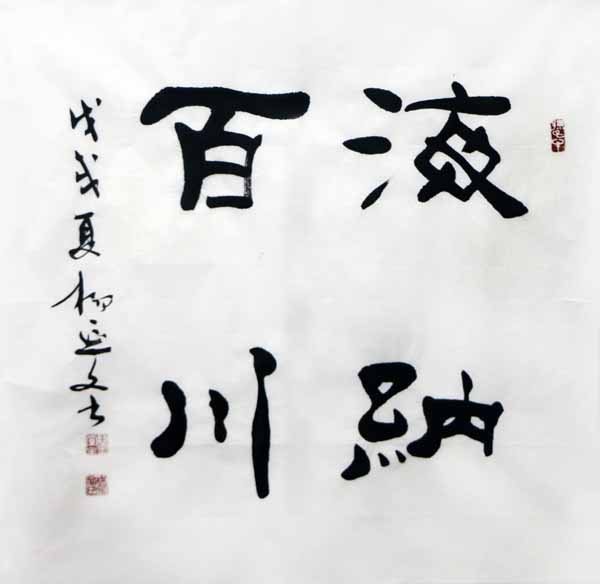 海納
百川
戊戌夏柳延文书